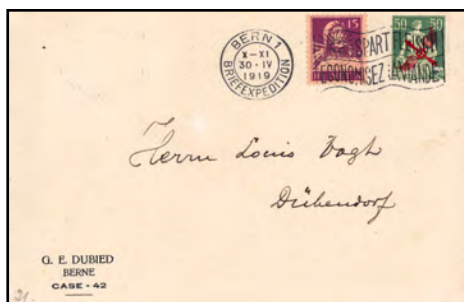 BERN 1
X-XI
30·IV
1919
BRIEFEXPEDITION
15
50 50
SPART FLEISCH
ECONOMISEZ LA VIANDE
Herrn Louis Vogt
Dübendorf
G. E. DUBIED
BERNE
CASE - 42
21.